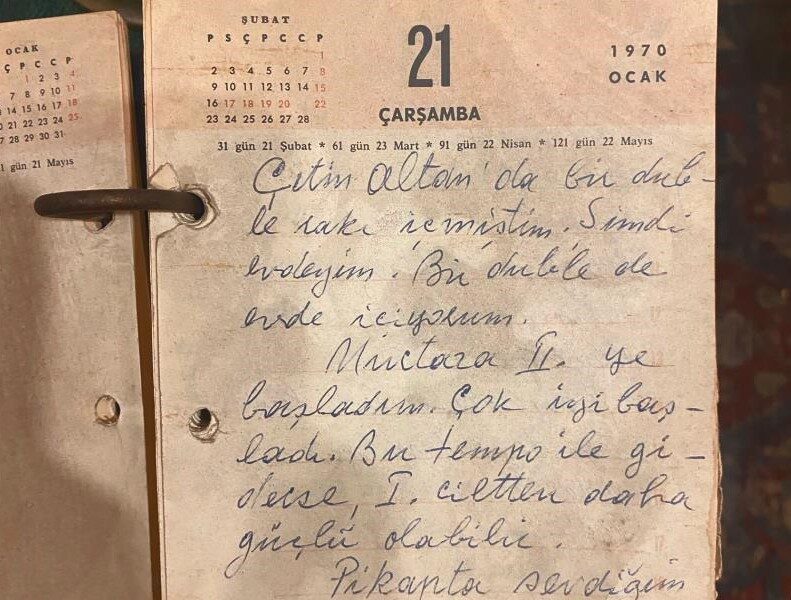 OCAK
Ç P C C P
1 2 3 4
7 8 9 10 11
14 15 16 17 18
20 21 22 23 24 25
27 28 29 30 31
gün 21 Mayıs
ŞUBAT
P S Ç P C C P
1
2 3 4 5 6 7 8
9 10 11 12 13 14 15
16 17 18 19 20 22
23 24 25 26 27 28
21
ÇARŞAMBA
1970
OCAK
31 gün 21 Şubat * 61 gün 23 Mart * 91 gün 22 Nisan * 121 gün 22 Mayıs
Çetin Altan'da bir dub-
le rakı içmiştim. Şimdi
evdeyim. Bir duble de
evde içiyorum.
Murtaza II. ye
başladım. Çok iyi baş-
ladı. Bu tempo ile gi-
derse, I. ciltten daha
güçlü olabilir.
Pikapta sevdiğim